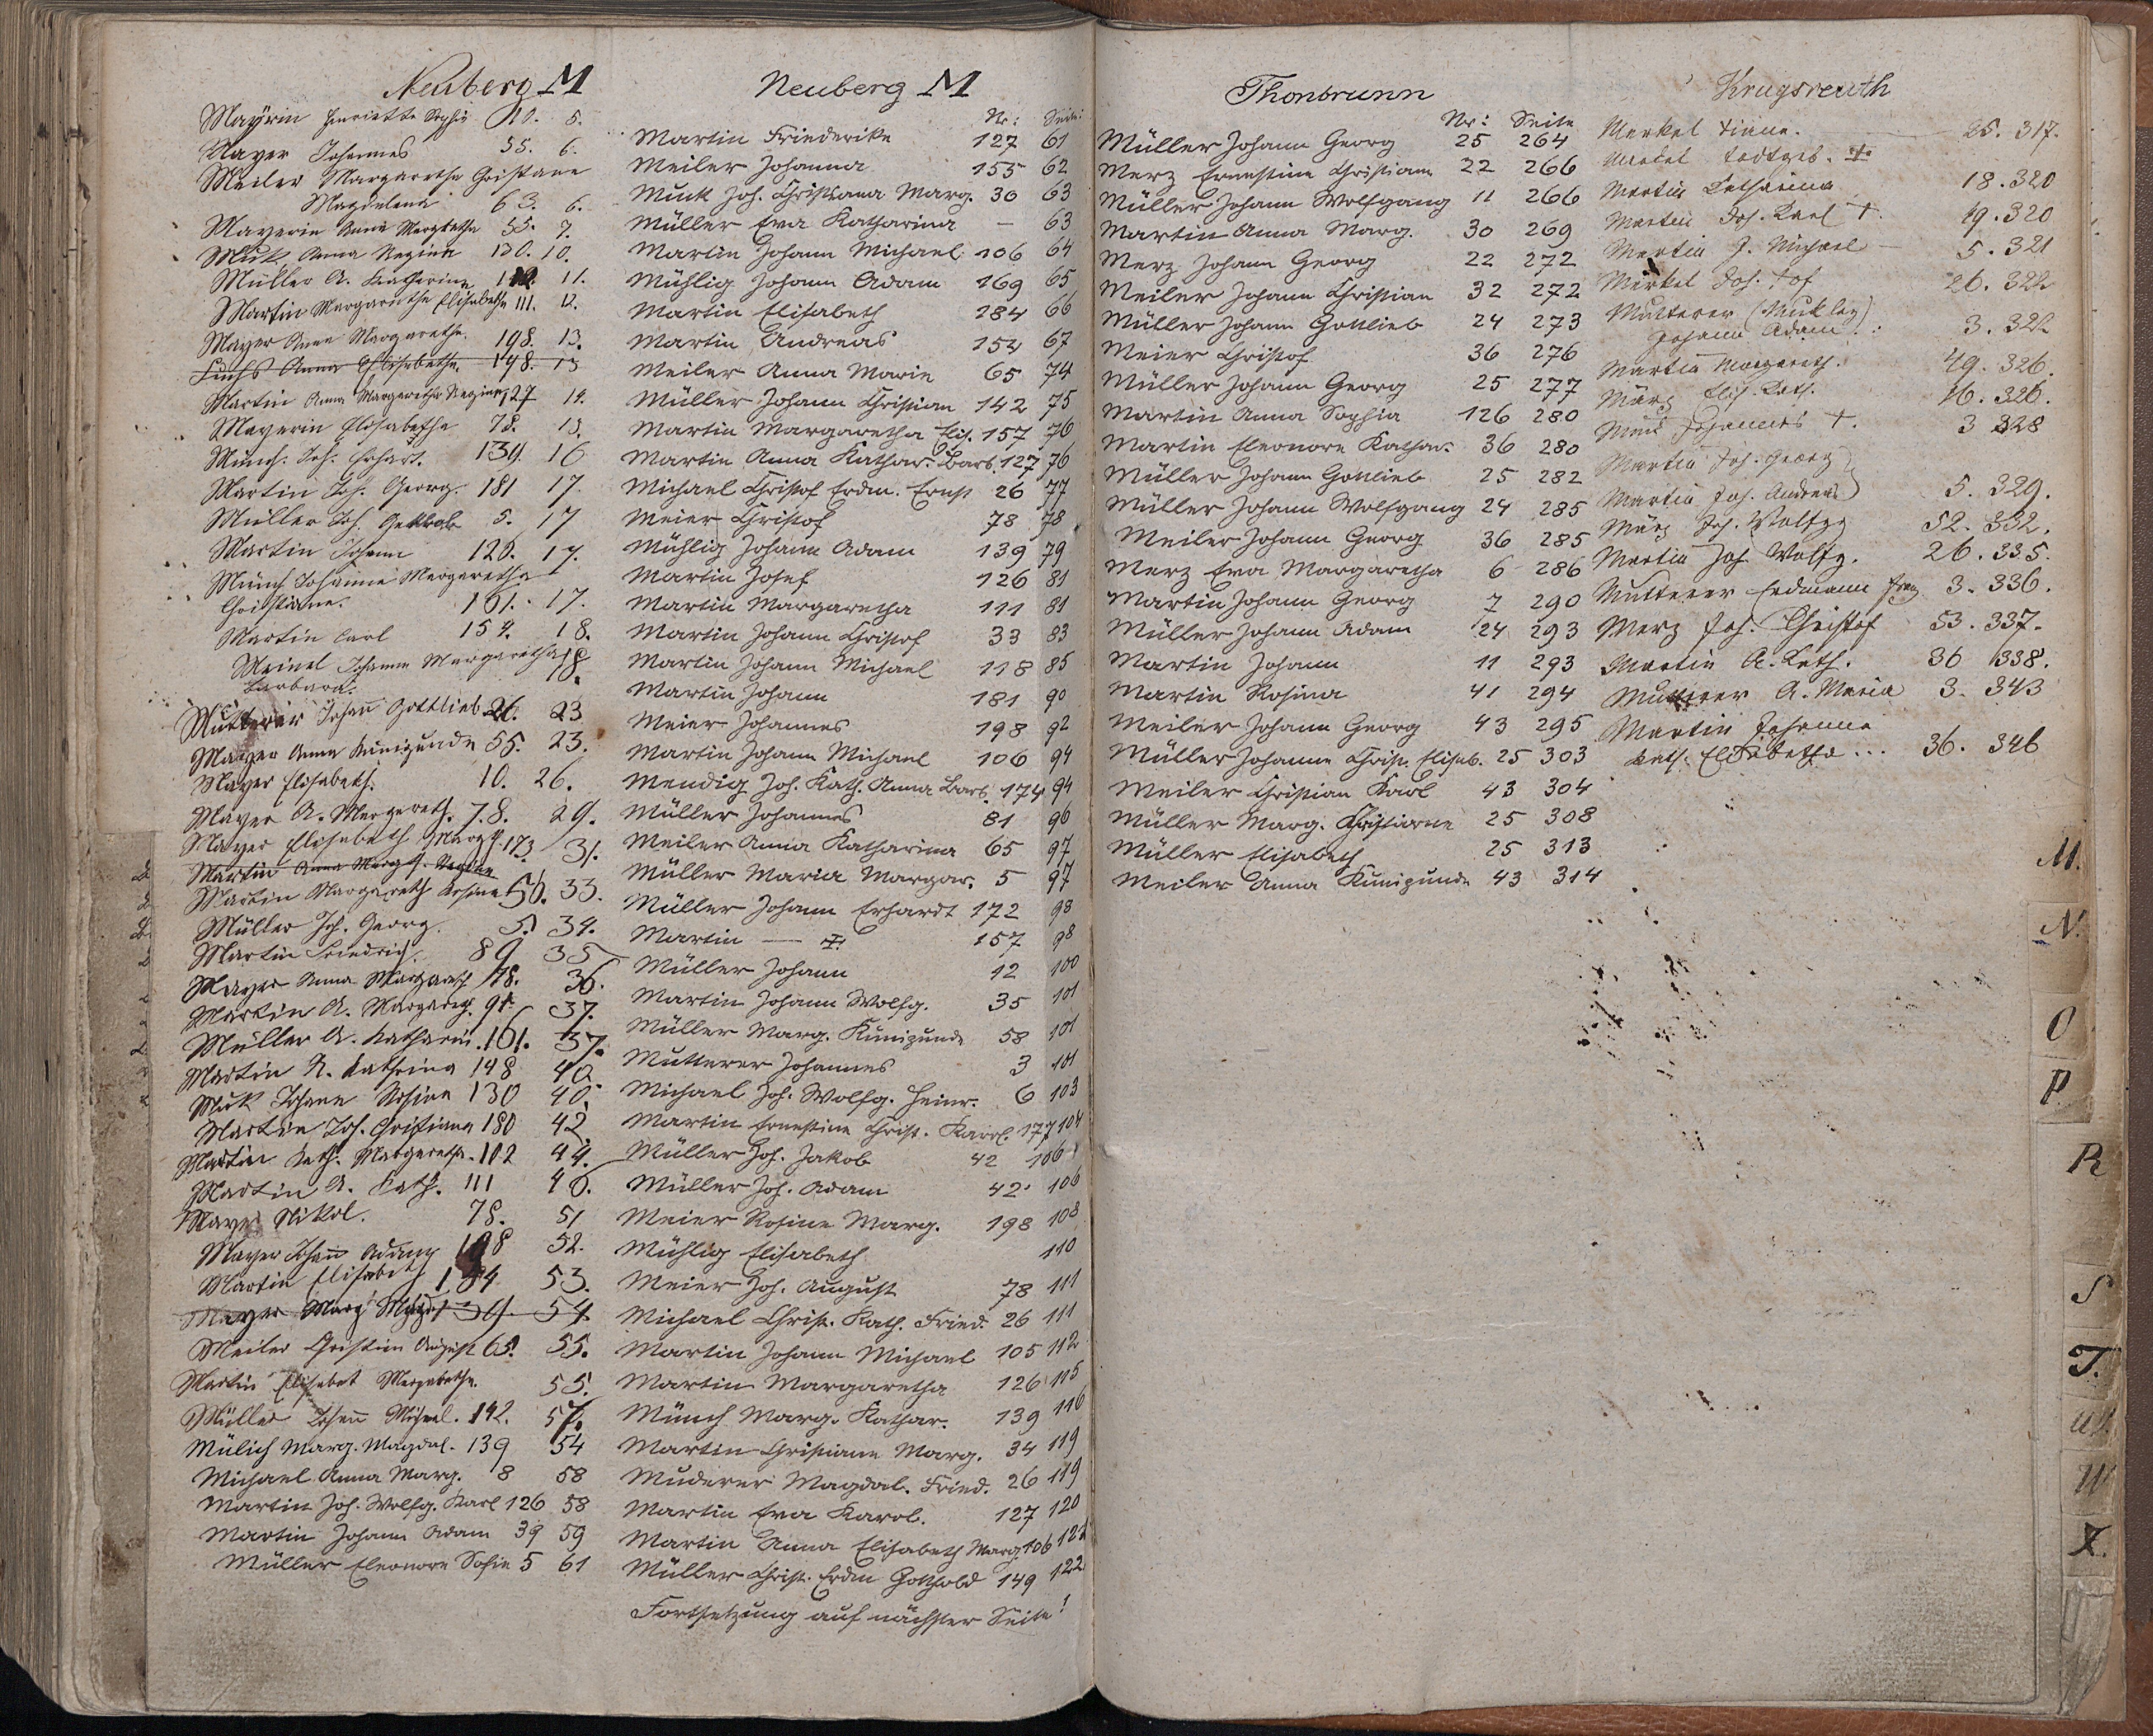 Neuberg M
Mayrin Henriette Sophie 5.
Mayer Johannes 55. 6.
Meiler Margaretha Christiane
Magdalena 63. 6.
Mayerin Anna Margaretha 55. 7.
Muk Anna Regina 130. 10.
Müller A. Katherine 11.
Martin Margaretha Elisabetha 111. 12.
Mayer Anna Margaretha. 198. 13.
Fuchs Anna Elisabetha. 198. 13
Martin Anna Margaretha Regina 127 14.
Mayerin Elisabetha 78. 15.
Münch. Joh. Erhart. 139. 16
Martin Joh. Georg. 181 17.
Müller Joh. 5. 17
Martin Johann 120. 17.
Münch Johanna Margaretha
Christiane. 161. 17.
Martin Carl 154. 18.
Meinel Johanna Margaretha 18.
Barbara.
Mutterer Johann Gottlieb 26. 23
Mayer Anna Kunigunda 55. 23.
Mayer Elisabeth. 10. 26.
Mayer A. Margareth. 78. 29.
Mayer Elisabeth Marg. 173. 31.
Martin Anna Marg.
Martin Margareth Rosina 50. 33.
Müller Joh. Georg. 5. 34.
Martin Friedrich. 89 35
Mayer Anna Margareth 78. 36.
Martin A. Margareth. 91. 37.
Müller A. Katharin. 161. 37.
Martin A. Kathrina 148 40.
Muk Johann Rosina 130 40.
Martin Joh. Christiana 180 42.
Martin Kath. Margaretha. 102 44.
Martin A. Kath. 111 46.
Mayer Nikol. 78. 51
Mayer Johann Adam 198 52.
Martin Elisabeth 184 53.
Mayer Marg. 139. 54.
Meiler Christian August 65. 55.
Martin Elisabet Margaretha. 55.
Müller Johann Michael. 142. 57.
Mülich Marg. Magdal. 139 54
Michael Anna Marg. 8 58
Martin Joh. Wolfg. Karl 126 58
Martin Johann Adam 39 59
Müller Eleonore Sofie 5 61
Neuberg M
Nr: Seite:
Martin Friederike 127 61
Meiler Johanna 155 62
Muck Joh. Christiana Marg. 30 63
Müller Eva Katharina – 63
Martin Johann Michael 106 64
Mühlig Johann Adam 169 65
Martin Elisabeth 184 66
Martin Andreas 154 67
Meiler Anna Marie 65 74
Müller Johann Christian 142 75
Martin Margaretha Elis. 157 76
Martin Anna Kathar. Barb. 127 76
Michael Christof Erdm. Ernst 26 77
Meier Christof 78 78
Mühlig Johann Adam 139 79
Martin Josef 126 81
Martin Margaretha 111 81
Martin Johann Christof 33 83
Martin Johann Michael 118 85
Martin Johann 181 90
Meier Johannes 198 92
Martin Johann Michael 106 94
Mendig Joh. Kath. Anna Barb. 174 94
Müller Johannes 81 96
Meiler Anna Katharina 65 97
Müller Maria Margar. 5 97
Müller Johann Erhardt 172 98
Martin — ‡ 157 98
Müller Johann 12 100
Martin Johann Wolfg. 35 101
Müller Marg. Kunigunde 58 101
Mutterer Johannes 3 101
Michael Joh. Wolfg. Heinr. 6 103
Martin Ernestine Christ. Karol. 177 104
Müller Joh. Jakob 42 106
Müller Joh. Adam 42 106
Meier Rosine Marg. 198 108
Mühlig Elisabeth 110
Meier Joh. August 78 111
Michael Christ. Kath. Fried. 26 111
Martin Johann Michael 105 112
Martin Margaretha 126 115
Münch Marg. Kathar. 139 116
Martin Christiane Marg. 34 119
Muderer Magdal. Fried. 26 119
Martin Eva Karol. 127 120
Martin Anna Elisabeth Marg. 106 122
Müller Christ. Erdm Gotthold 149 122
Fortsetzung auf nächster Seite!
Thonbrunn
Nr: Seite
Müller Johann Georg 25 264
Merz Ernestine Christiane 22 266
Müller Johann Wolfgang 11 266
Martin Anna Marg. 30 269
Merz Johann Georg 22 272
Meiler Johann Christian 32 272
Müller Johann Gottlieb 24 273
Meier Christof 36 276
Müller Johann Georg 25 277
Martin Anna Sophia 126 280
Martin Eleonore Kathar. 36 280
Müller Johann Gottlieb 25 282
Müller Johann Wolfgang 24 285
Meiler Johann Georg 36 285
Merz Eva Margaretha 6 286
Martin Johann Georg 7 290
Müller Johann Adam 24 293
Martin Johann 11 293
Martin Rosina 41 294
Meiler Johann Georg 43 295
Müller Johanne Christ. Elisab. 25 303
Meiler Christian Karl 43 304
Müller Marg. Christiane 25 308
Müller Elisabeth 25 313
Meiler Anna Kunigunde 43 314
Krugsreuth
Merkel 25. 317.
Merkel todtgeb. ‡
Martin Katharina 18. 320
Martin Joh. Karl †. 19. 320
Martin J. Michael 5. 321
Merkel Joh. 26. 322
Mutterer
Johann Adam 3. 322
Martin Margareth. 49. 326.
März Elis. Kath. 16. 326.
Johannes †. 3 328
Martin Joh. Georg
Martin Joh. Andreas 5. 329.
März Joh. Wolfg 52. 332.
Martin Joh. Wolfg. 26. 335.
Mutterer Erdmann 3. 336.
Merz Joh. Christof 53. 337.
Martin A. Kath. 36 338.
Mutterer A. Maria 3. 343
Martin Johanna
Kath. Elisabetha ... 36. 346
M.
N.
O
P.
R
S
T.
W
Z.